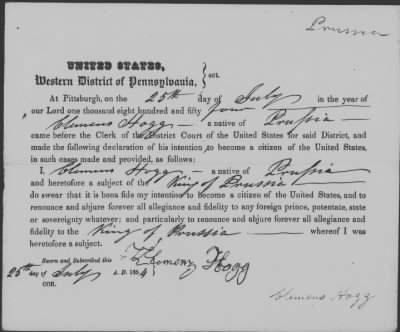 Prussia
UNITED STATES,
Western District of Pennsylvania, } sct.
At Pittsburgh, on the 25th day of July in the year of
our Lord one thousand eight hundred and fifty four
Clemens Hogg — a native of Prussia
came before the Clerk of the District Court of the United States for said District, and
made the following declaration of his intention to become a citizen of the United States,
in such cases made and provided, as follows:
I, Clemens Hogg — a native of Prussia
and heretofore a subject of the King of Prussia —
do swear that it is bona fide my intention to become a citizen of the United States, and to
renounce and abjure forever all allegiance and fidelity to any foreign prince, potentate, state
or sovereignty whatever; and particularly to renounce and abjure forever all allegiance and
fidelity to the King of Prussia — whereof I was
heretofore a subject.
Sworn and Subscribed this
25th day of July A. D. 1854 } Klemenz Hogg
COR.
Clemens Hogg